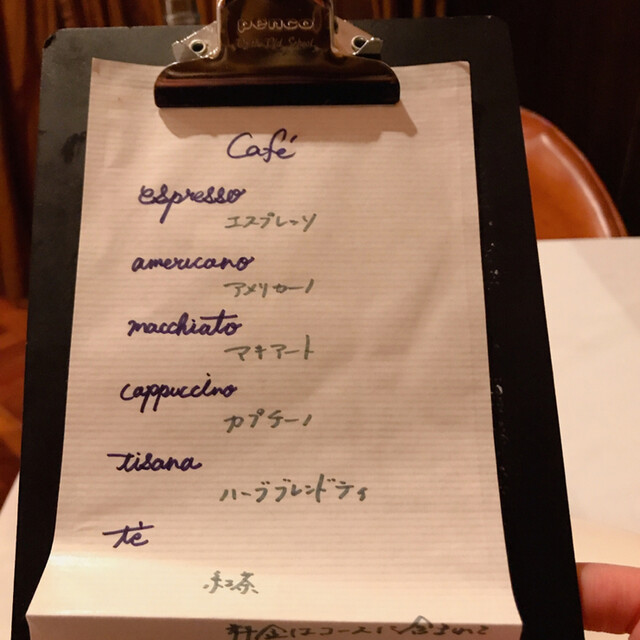 penco
Café
espresso
エスプレッソ
americano
アメリカーノ
macchiato
マキアート
cappuccino
カプチーノ
tisana
ハーブブレンドティ
tè
紅茶
料金はコースに含